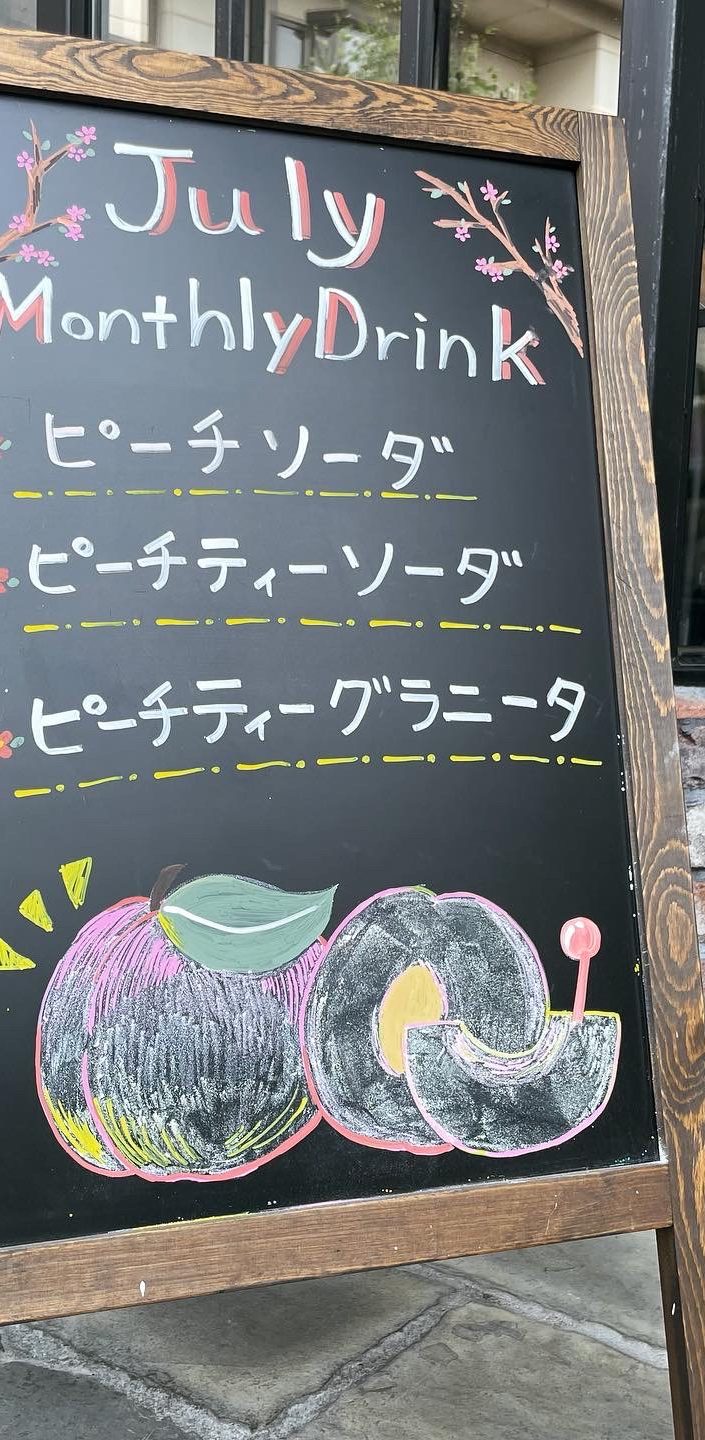 July
Monthly Drink
ピーチソーダ
ピーチティーソーダ
ピーチティーグラニータ